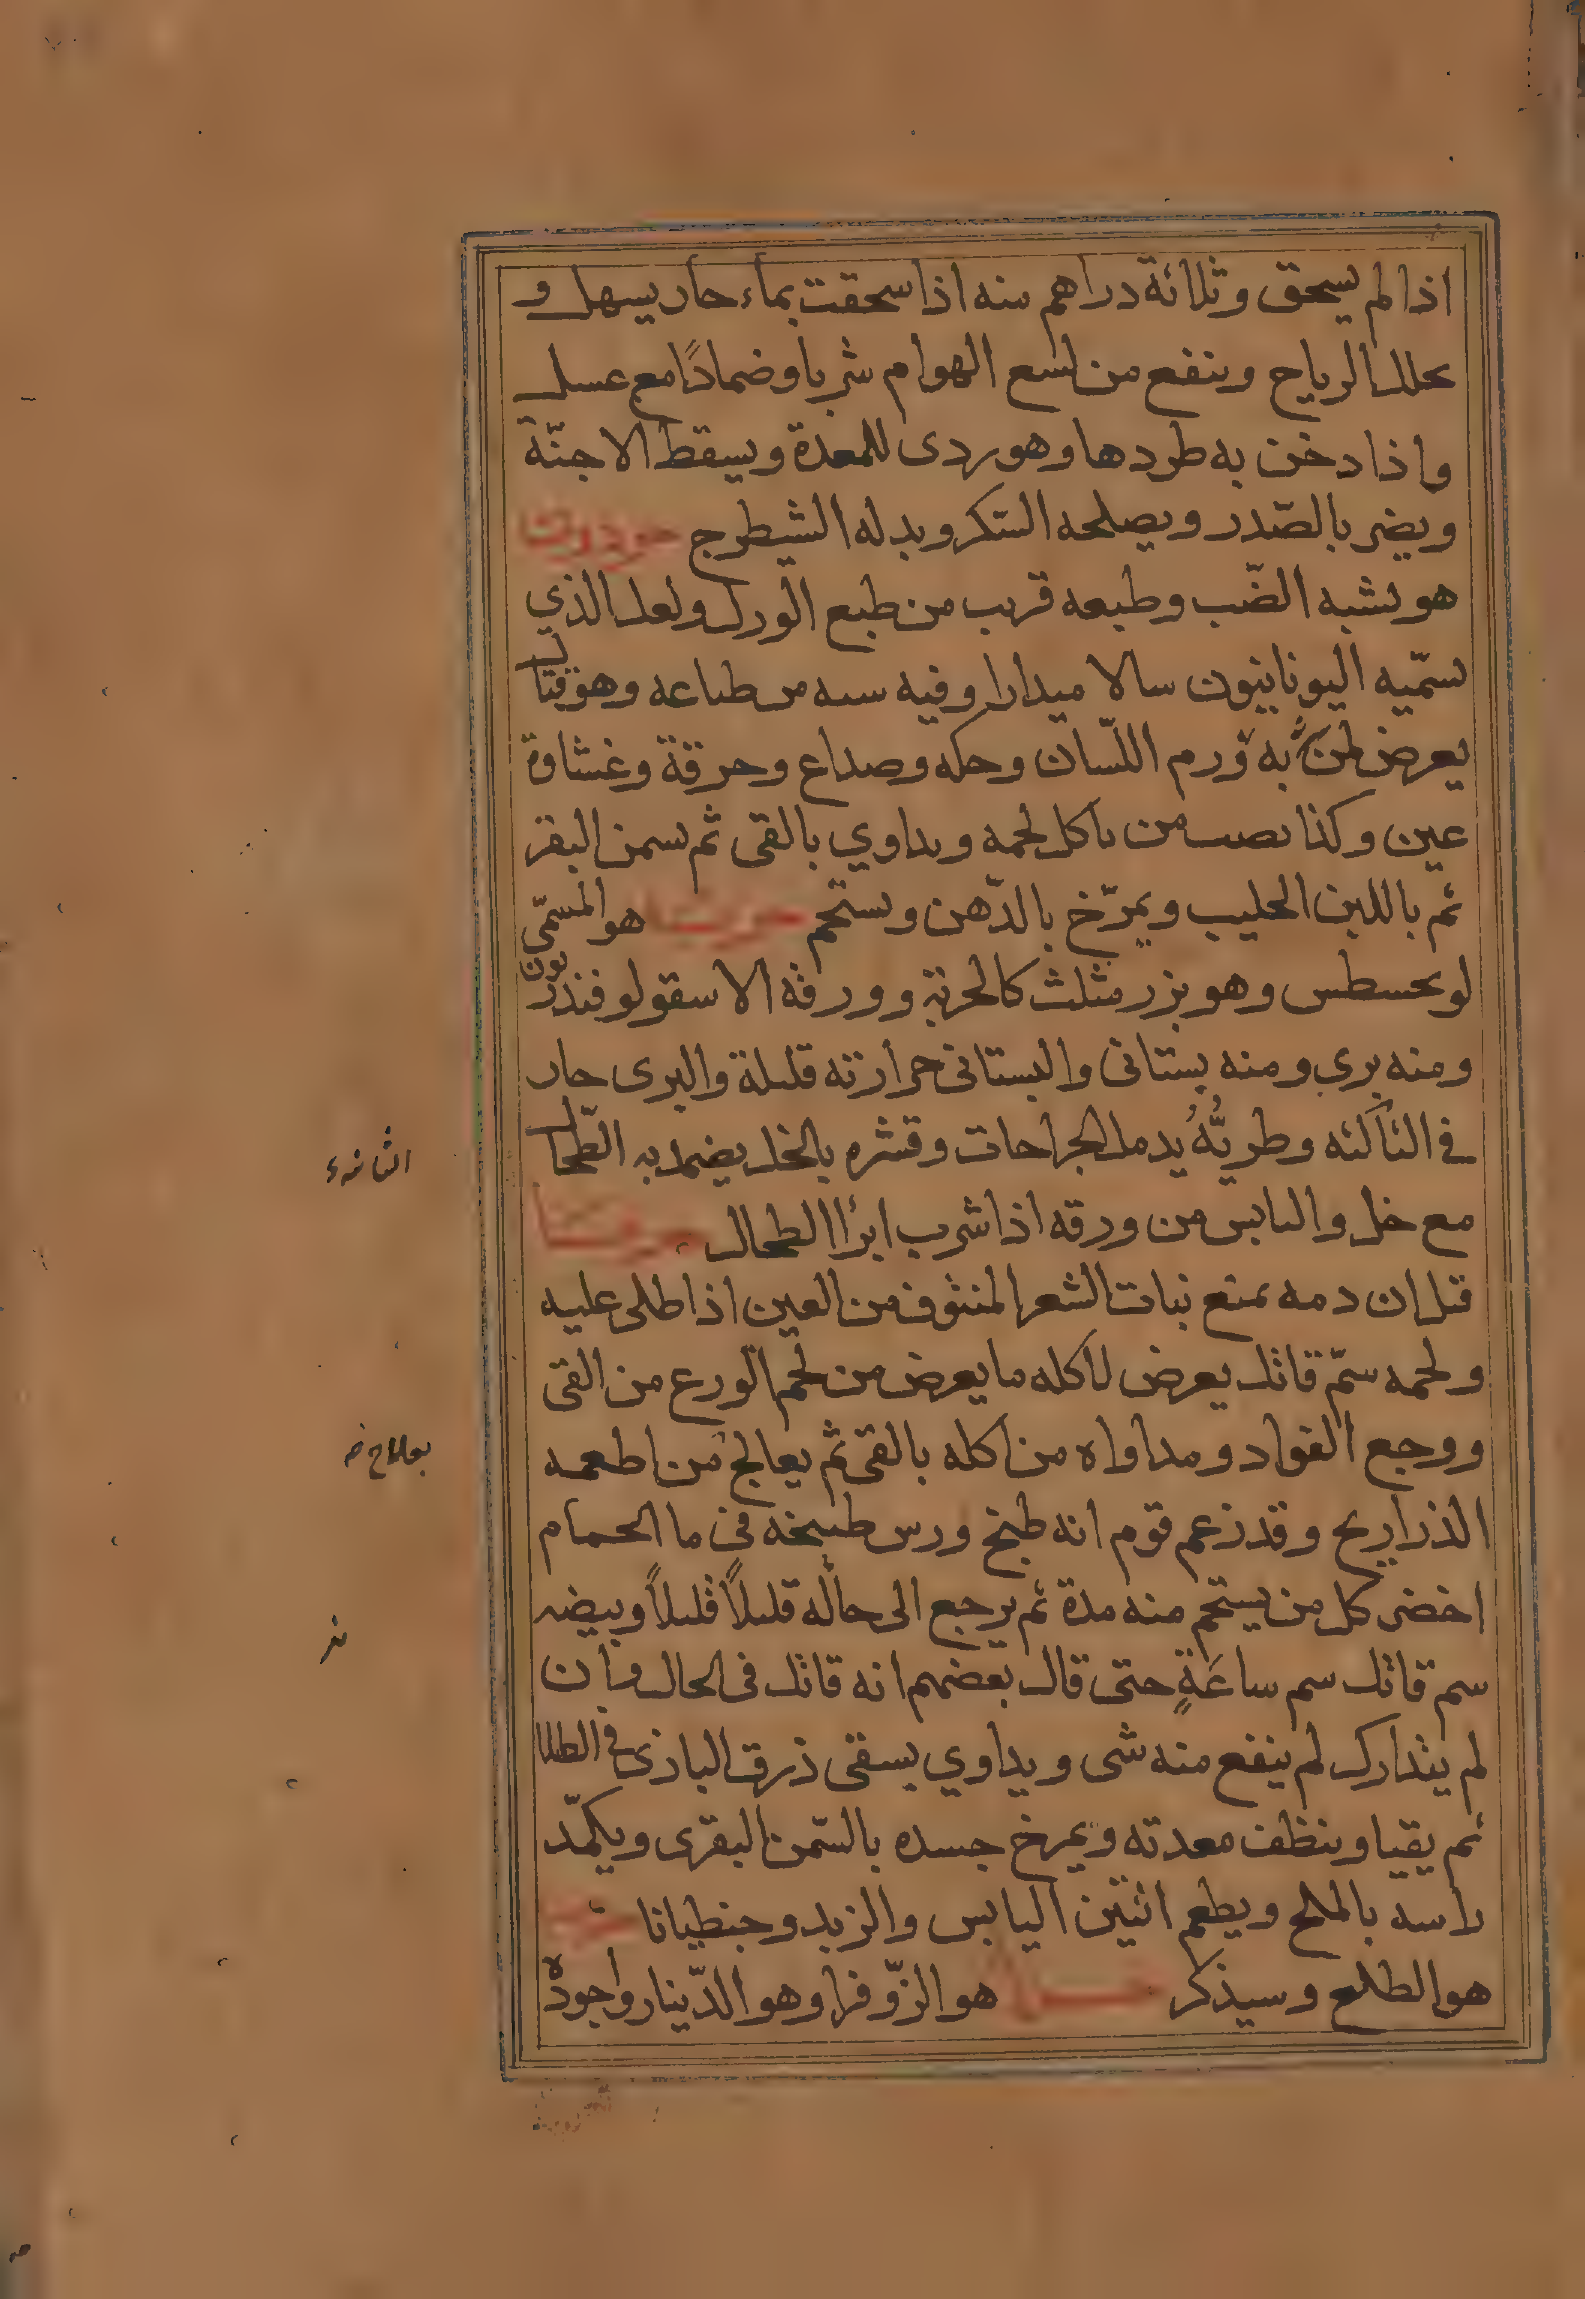 اذا لم يسحق وثلاثة دراهم منه اذا سحقت بماء حار يسهل و
يحلل الرياح وينفع من لسع الهوام شربا وضمادًا مع عسل
واذا دخن به طردها وهو ردى للمعدة ويسقط الاجنّة
ويضر بالصّدر ويصلحه السّكر وبدله الشيطرج حردون
هو يشبه الضّب وطبعه قريب من طبع الورل ولعل الذي
يسمّيه اليونانيون سالا ميدارا وفيه من طباعه وهو قتال
يعرض لمن به ورم اللّسان وحكه وصداع وحرقة وغشاوة
عين وكذا من ياكل لحمه ويداوي بالقى ثم بسمن البقر
ثم باللبن الحليب ويمرّخ بالدّهن ويستحم هو المسمّى
لوبحسطس وهو بزر مثلث كالحربة وورقه الاسقولوفندريون
ومنه بري ومنه بستانى والبستانى حرارته قليلة والبرى حار
فى الثالثه وطريُّهُ يدمل الجراحات وقشره بالخل يضمد به الطّحال
مع خل واليابس من ورقه اذا شرب ابرأ الطحال
قيل ان دمه يمنع نبات الشعر المنتوف من العين اذا طلى عليه
ولحمه سمّ قاتل يعرض لاكله ما يعرض من لحم الورع من القى
ووجع الفواد ومداواه من اكله بالقى ثم يعالج من اطعمه
الذراريح وقد زعم قوم انه طبخ ورس طبيخه فى ما الحمام
اخضر كل من يستحم منه مدة ثم يرجع الى حاله قليلاً قليلاً وبيضه
سم قاتل سم ساعَةٍ حتى قال بعضهم انه قاتل فى الحال وان
لم يتدارك لم ينفع منه شى ويداوي بسقى ذرق البازى فى الطلا
ثم يقيا وينظف معدته ويمرخ جسده بالسّمن البقرى ويكمّد
راسه بالملح ويطعم التين اليابس والزبد وجنطيانا
هو الطلع وسيذكر هو الزّوفرا وهو الدّينارو اجوده